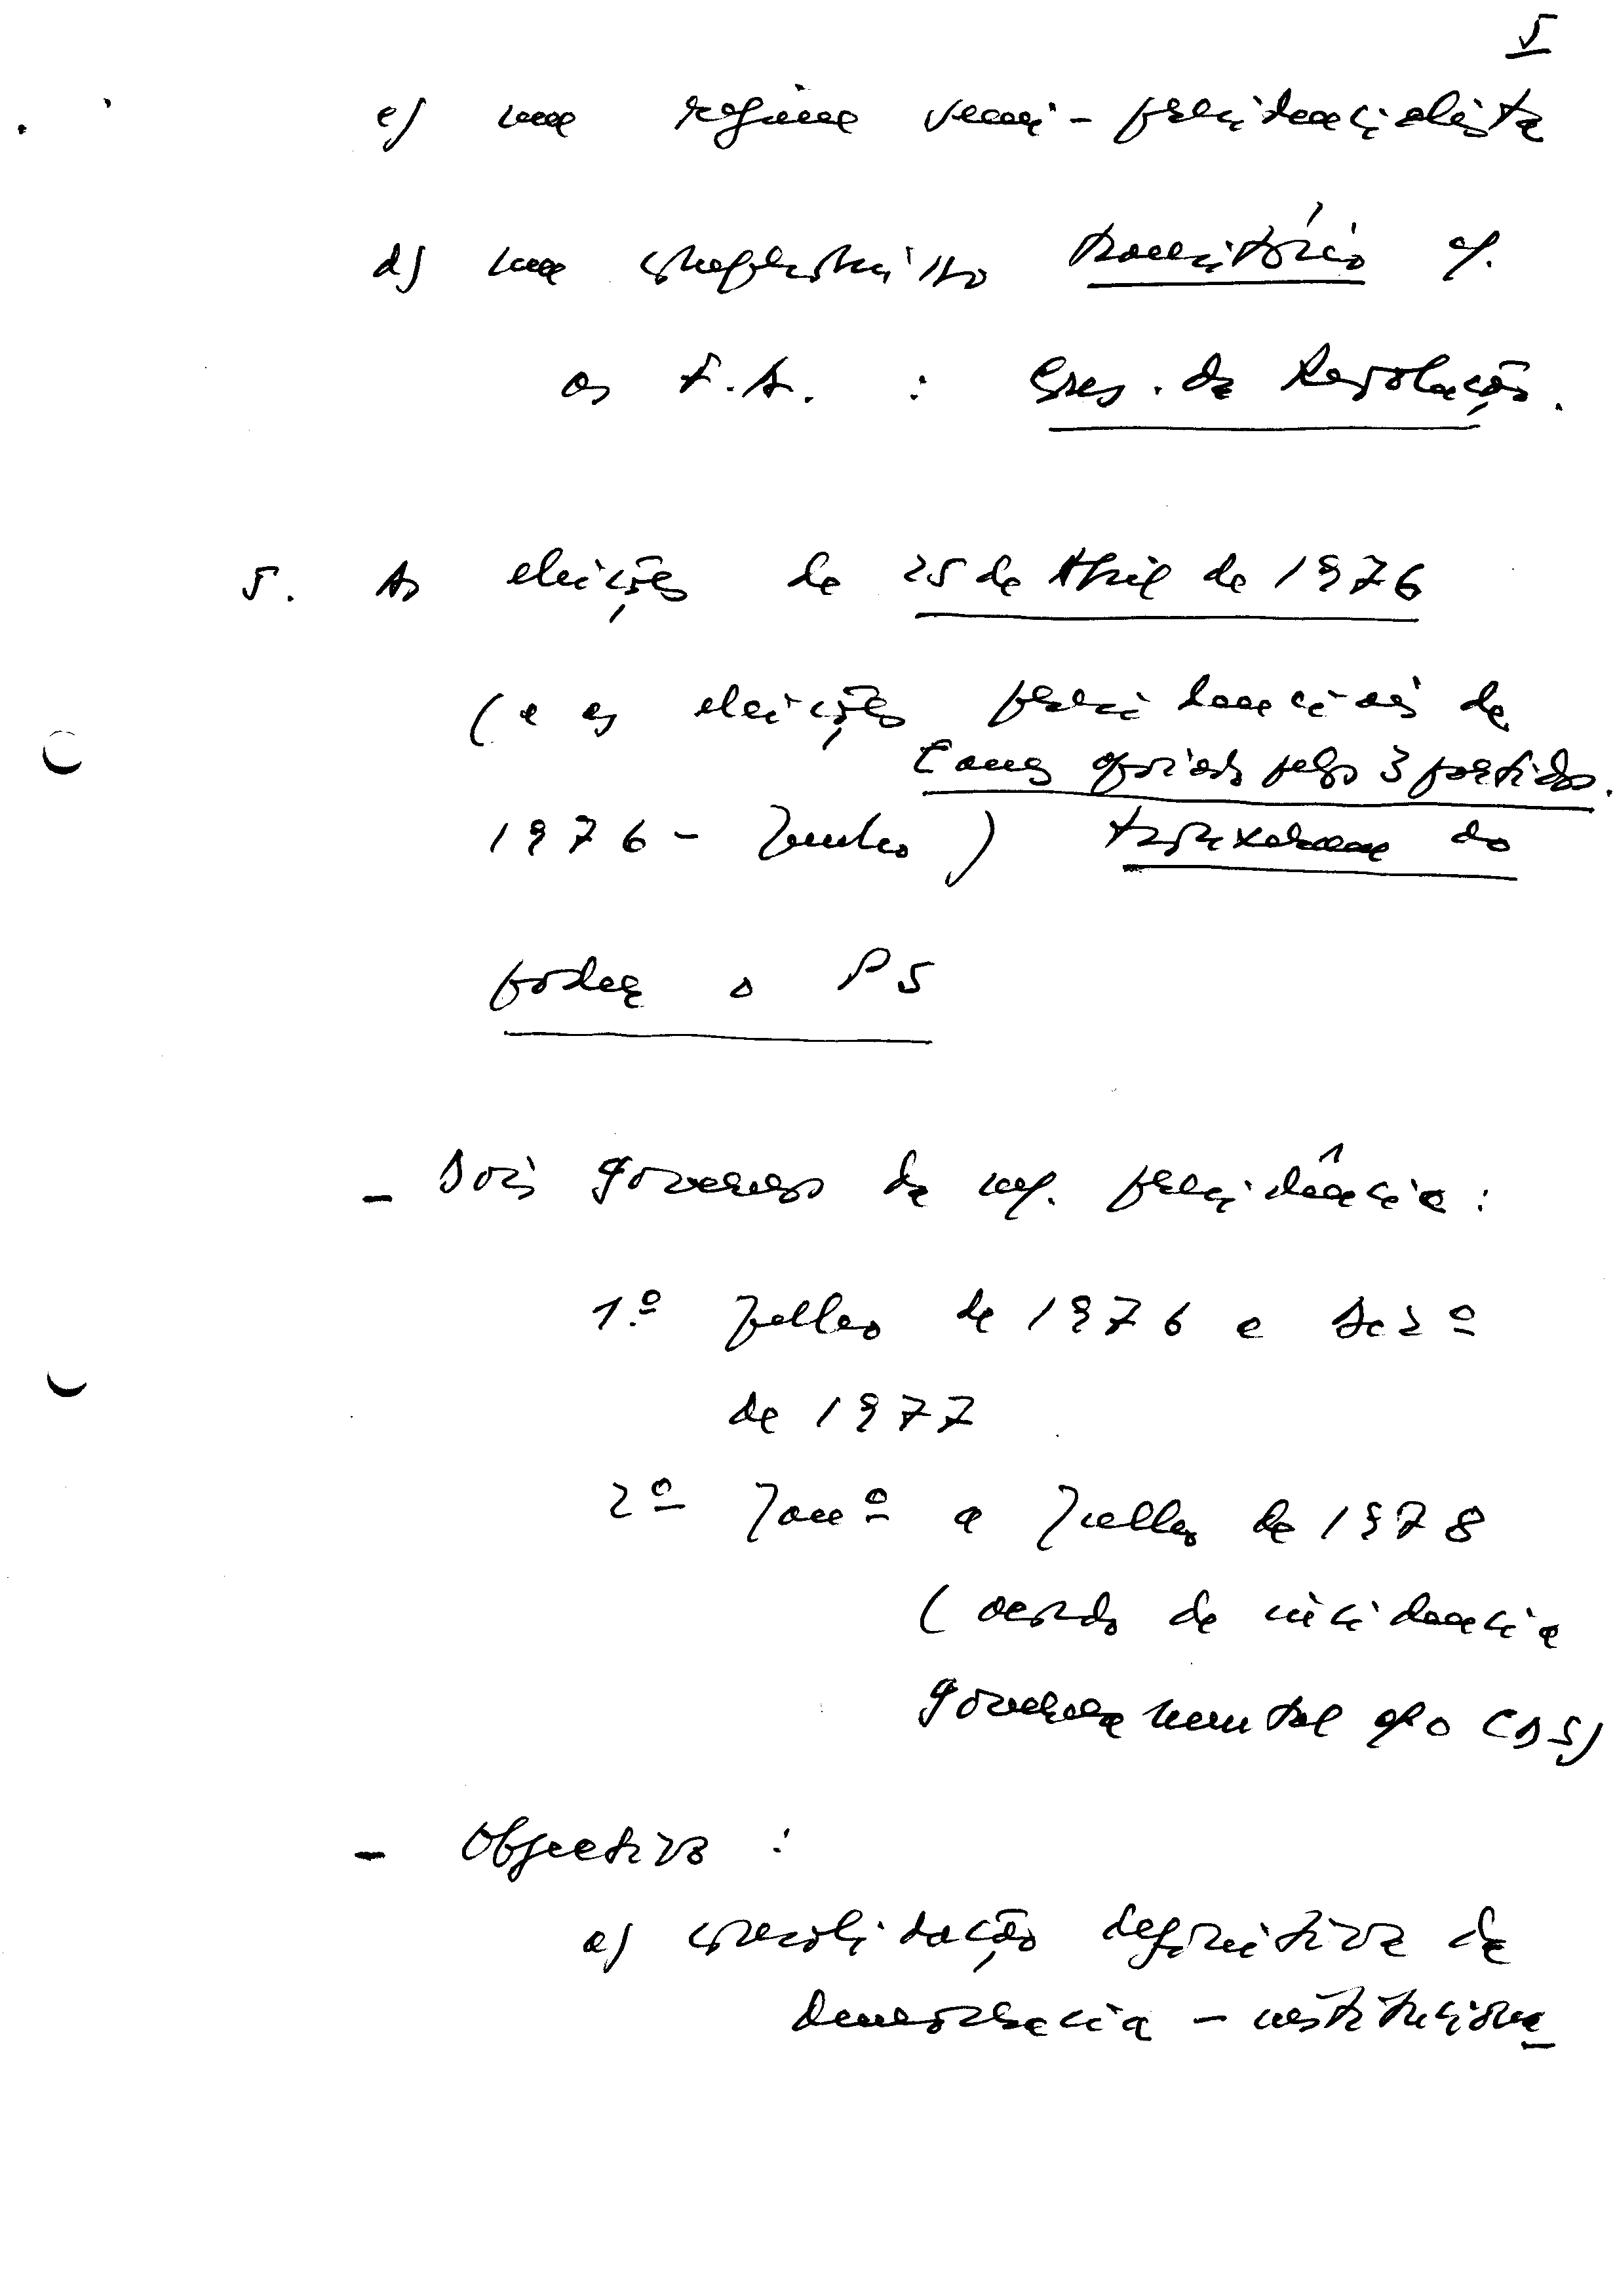 5
c) um regime semi-presidencialista
d) um compromisso transitório c/.
as F.A. : Cons. da Revolução.
5. As eleições de 25 de Abril de 1976
(e as eleições presidenciais de
Eanes apoiado pelos 3 partidos.
1976 - Junho) trouxeram ao
poder o PS
- Dois governos da m/. presidência :
1.º Julho de 1976 e Dezº
de 1977
2º Janº a Julho de 1978
(acordo de incidência
governamental c/ o CDS)
- Objectivo :
a) consolidação definitiva da
Democracia - instituciona